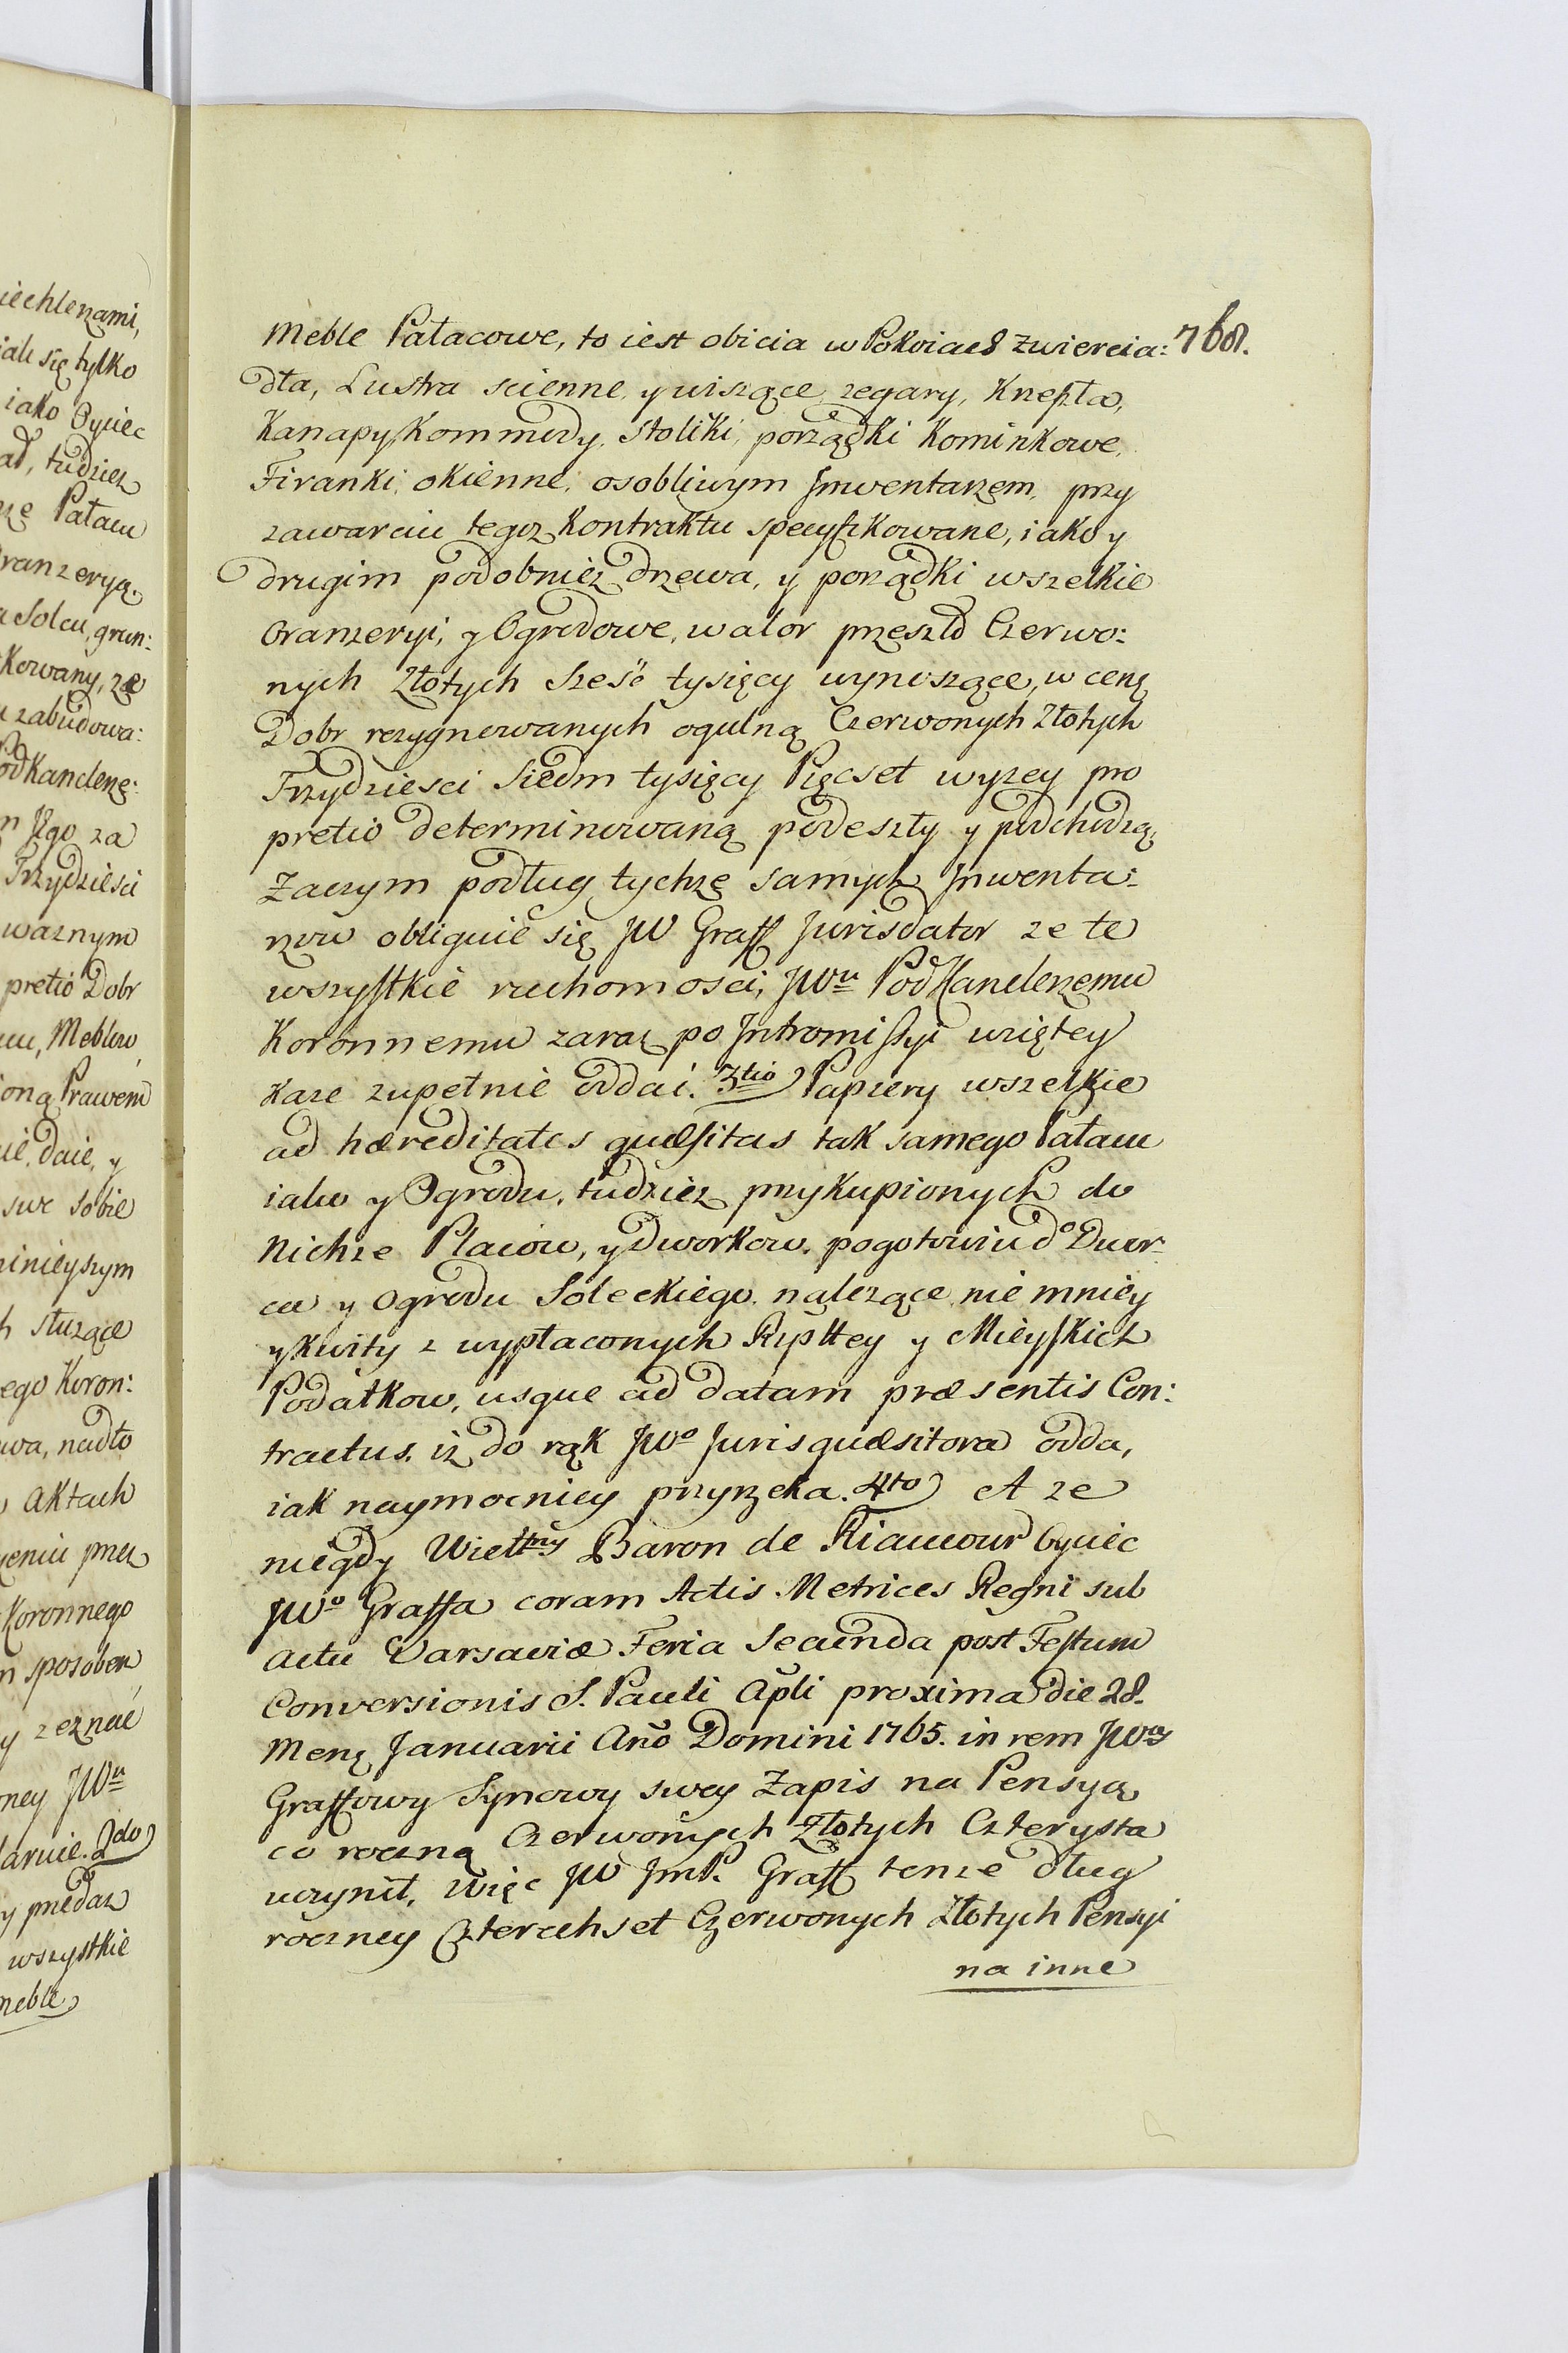 iechlerzami,
iale się tylko
iako Oyciec
ad, tudziesz
rze Pałacu
Oranzeryą.
a Solcu, grun:
kowany, ze
u zabudowa:
Podkanclerze:
m Jgo za
Trzydziesci
waznym
pretio Dobr
cu, Meblow
oną Prawem
ie, daie, y
swe sobie
ninieyszym
h służące
ego Koron:
wa, nadto
o Aktach
eniu przez
Koronnego
m sposobem
y zeznać
ney JWu
larnie. 2do)
y przedaz
wszystkie
meble
768.
Meble Pałacowe, to iest obicia w Pokoiach zwiercia:
dła, Lustra scienne, y wiszące, zegary, Krzesła,
Kanapy, Kommody, Stoliki, porządki Kominkowe,
Firanki, okienne, osobliwym Jnwentarzem, przy
zawarciu tegoz Kontraktu specyfikowane, iako y
drugim podobniez drzewa, y porządki wszelkie
Oranzeryi, y Ogrodowe, walor przeszło Czerwo:
nych Złotych Sześć tysięcy wynoszące, w cenę
Dobr rezygnowanych ogulną Czerwonych Złotych
Trzydziesci Siedm tysięcy Pięcset wyzey pro
pretio determinowaną podeszły y podchodzą,
Zaczym podług tychze samych Jnwenta:
rzow obliguie się JW Graff Jurisdator ze te
wszystkie ruchomosci, JWu PodKanclerzemu
Koronnemu zaraz po Jntromissyi wziętey
kaze zupełnie oddać. 3tio) Papiery wszelkie
ad hæreditates quæsitas tak samego Pałacu
iako y Ogrodu, tudziesz przykupionych do
Nichze Placow, y Dworkow, pogotowiu do Dwor:
ca y Ogrodu Soleckiego nalezące, nie mniey
y kwity z wypłaconych Rzpltey y Mieyskich
Podatkow, usque ad datam præsentis Con:
tractus, iz do rąk JWo Jurisquæsitora odda,
iak naymocniey przyrzeka. 4to) A ze
niegdy Wielmy Baron de Riaucour Oyciec
JWo Graffa coram Actis Metrices Regni sub
actu Varsaviæ Feria Secunda post Festum
Conversionis S. Pauli Apli proxima die 28.
Mens Januarii Ano Domini 1765. in rem JWey
Graffowy Synowy swey Zapis na Pensyą
co roczną Czerwonych Złotych Czterysta
uczynił, Więc JW JmP. Graff tenze dług
roczney Czterechset Czerwonych Złotych Pensyi
na inne